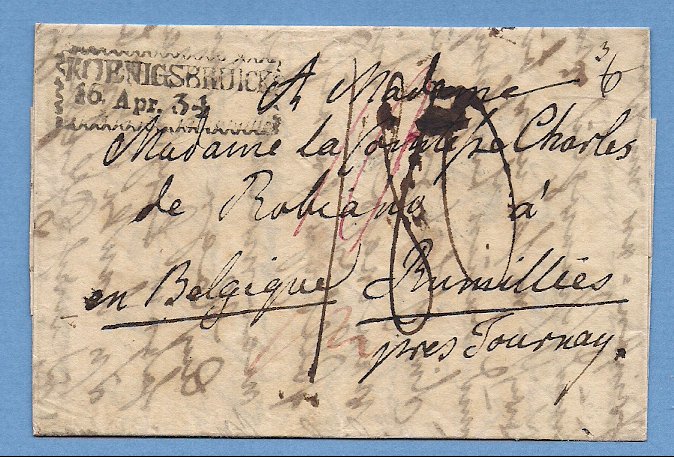 KOENIGSBRUCK
16. Apr. 34
A Madame
Madame la Comtesse Charles
de Robiano à
en Belgique Rumillies
près Tournay.